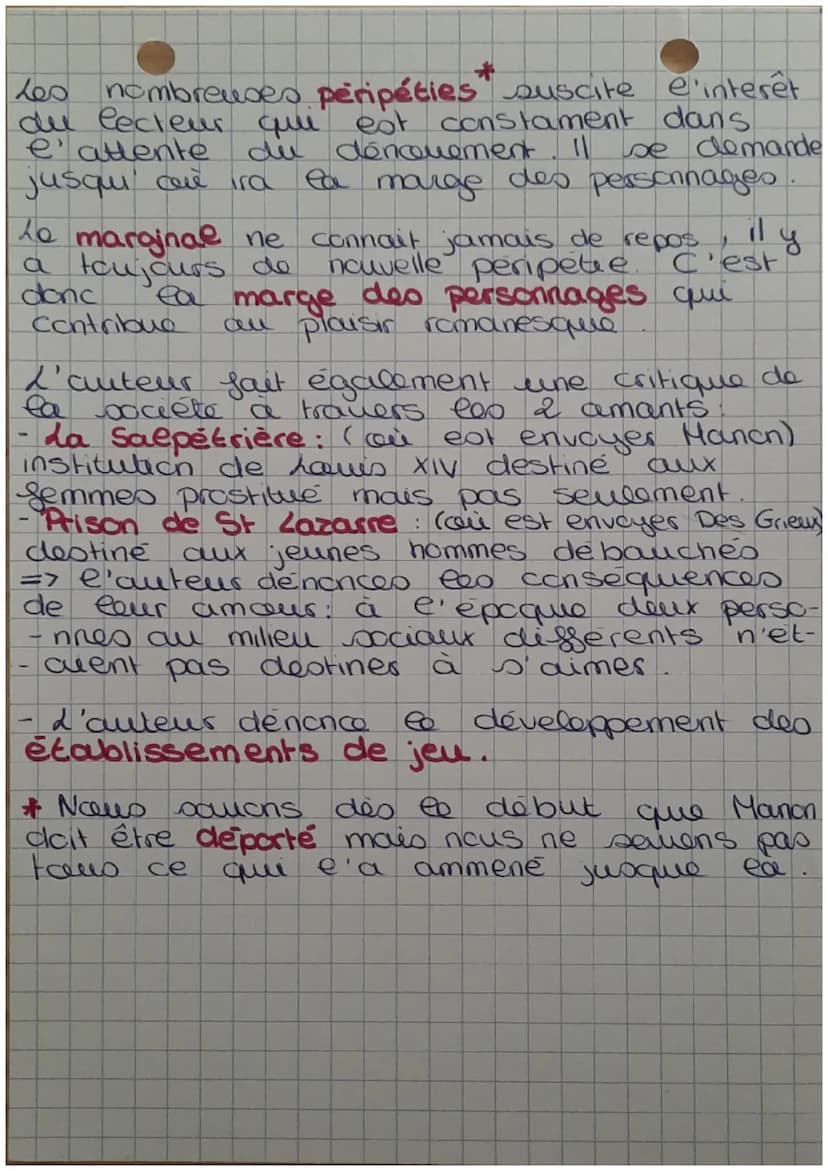 Les nombreuses péripéties* suscite l'interêt
du lecteur qui est constament dans
l'attente du dénouement. Il se demande
jusqu'où ira la marge des personnages.
Le marginal ne connait jamais de repos, il y
a toujours de nouvelle péripétie. C'est
donc la marge des personnages qui
contribue au plaisir romanesque.
L'auteur fait également une critique de
la société à travers les 2 amants:
- La Salpétrière: (où est envoyer Manon)
institution de Louis XIV destiné aux
femmes prostitué mais pas seulement.
- Prison de St Lazarre: (où est envoyer Des Grieux)
destiné aux jeunes hommes débauchés
=> l'auteur dénonces les conséquences
de leur amour: à l'époque deux perso-
-nnes au milieu sociaux différents n'ét-
-aient pas destinés à s'aimer.
- L'auteur dénonce le développement des
établissements de jeu.
* Nous savons dès le début que Manon
doit être déporté mais nous ne savons pas
tous ce qui l'a ammené jusque là.